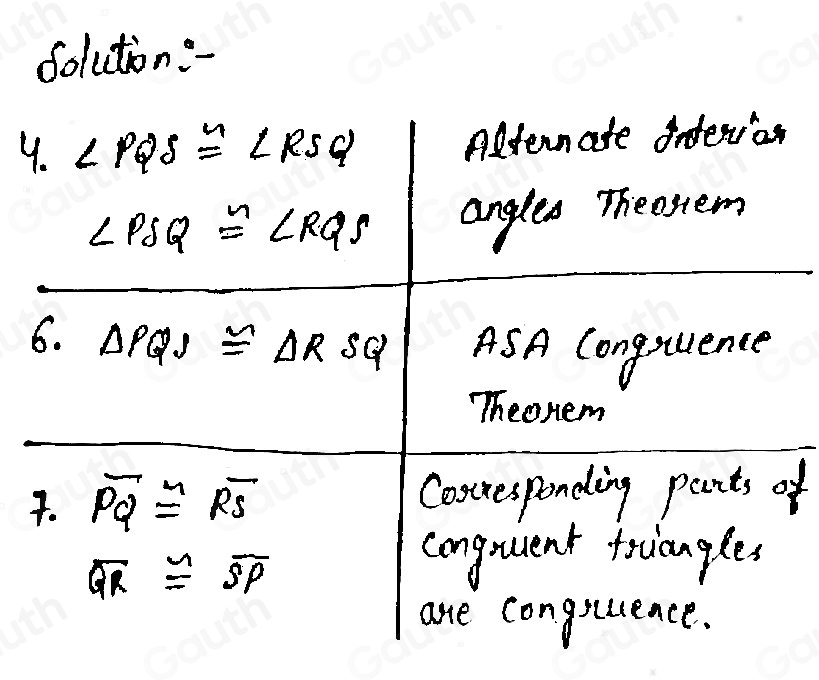 Solution:-
4. ∠PQS ≅ ∠RSQ
∠PSQ ≅ ∠RQS
Alternate Interior
angles Theorem
6. ΔPQS ≅ ΔRSQ
ASA Congruence
Theorem
7. P̅Q̅ ≅ R̅S̅
Q̅R̅ ≅ S̅P̅
Corresponding parts of
congruent triangles
are congruence.
Gauth